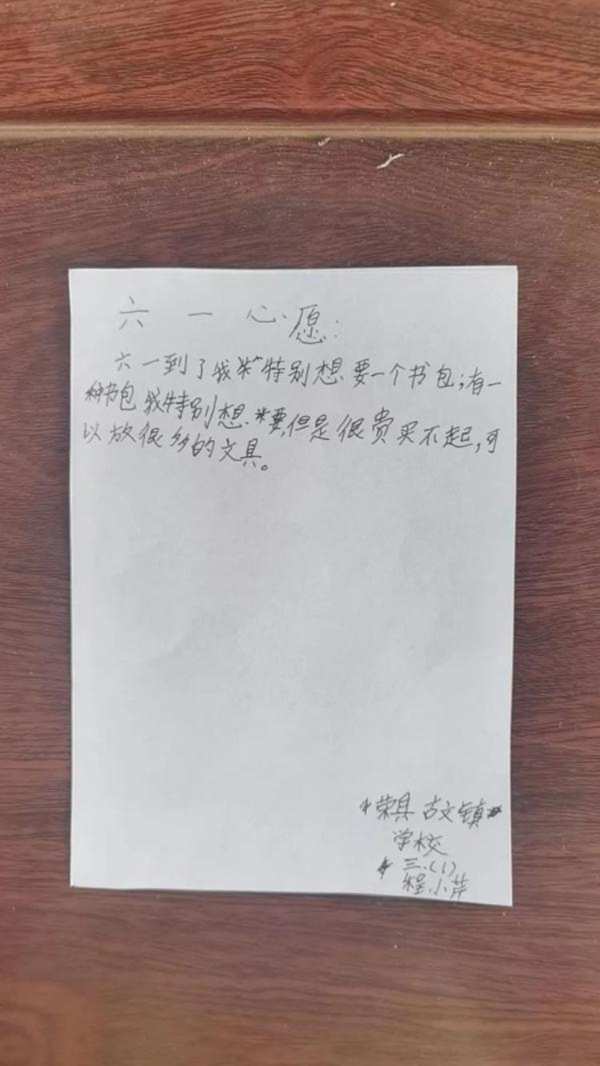 六一心愿:
六一到了我特别想要一个书包;有一
种书包我特别想要,但是很贵买不起,可
以放很多的文具。
荣具古文镇
学校
三.(1)
程小芹